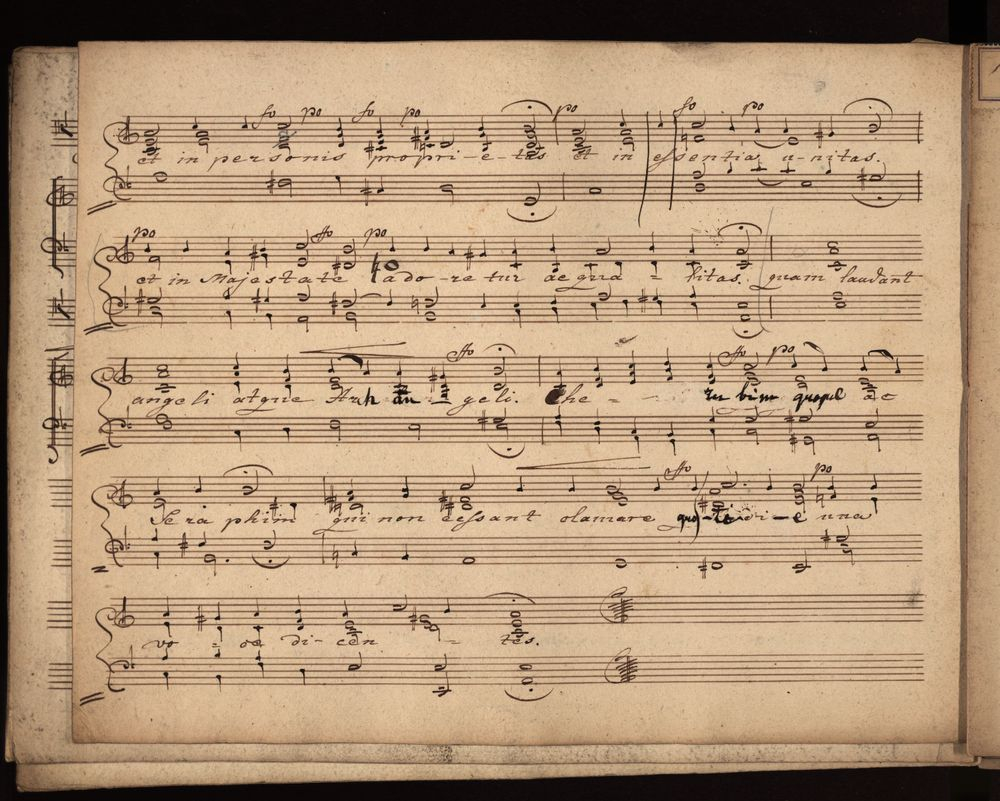 fo po fo po po fo po
et in personis propri-e-tas et in essentia u-nitas.
po ffo po
et in Majestate ado-re tur aequa - litas. quam laudant
ffo ffo po
angeli atque Arch an - geli. Che - - ru bim quoque ac
ffo po
Se ra phim qui non cessant clamare quo-ti di-e una
vo - ce di-cen - tes.